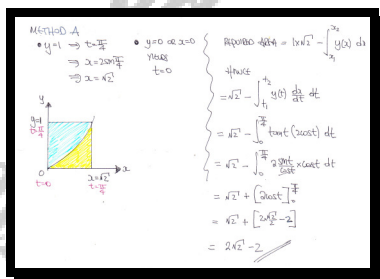 METHOD A
• y=1 ⇒ t=π/4
⇒ x=2sin π/4
⇒ x=√2
• y=0 or x=0
YIELDS
t=0
y
y=1
t=π/4
0
t=0
x=√2
t=π/4
x
REQUIRED AREA = 1×√2 − ∫_{x₁}^{x₂} y(x) dx
HENCE
= √2 − ∫_{t₁}^{t₂} y(t) dx/dt dt
= √2 − ∫_0^{π/4} tant (2cost) dt
= √2 − ∫_0^{π/4} 2 sint/cost × cost dt
= √2 + [2cost]_0^{π/4}
= √2 + [2 √2/2 − 2]
= 2√2 − 2